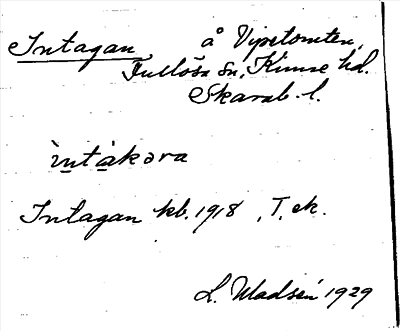 Intagan å Vipetomten,
Fullösa sn, Kinne hd.
Skarab. l.
ìntàkəra
Intagan kb. 1918, T. ek.
L. Madsén 1929